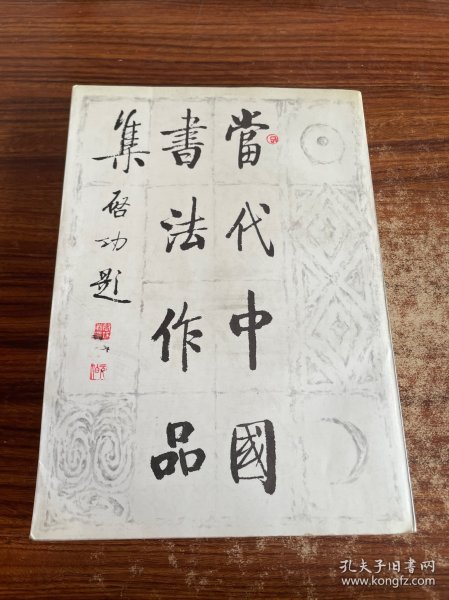 當代中國
書法作品
集 啓功題
孔夫子旧书网
www.kongfz.com